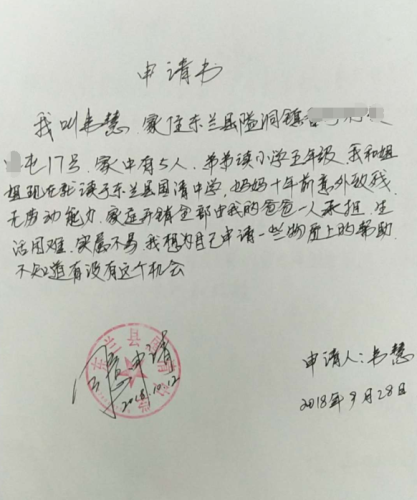 申请书
我叫韦慧,家住东兰县隘洞镇
屯17号,家中有5人,弟弟读小学五年级,我和姐
姐现在就读于东兰县国清中学,妈妈十年前意外致残,
无劳动能力,家庭开销全部由我的爸爸一人承担,生
活困难,实属不易,我想为自己申请一些物质上的帮助,
不知道有没有这个机会
东兰县
同意申请
2018.10.12
申请人:韦慧
2018年9月28日